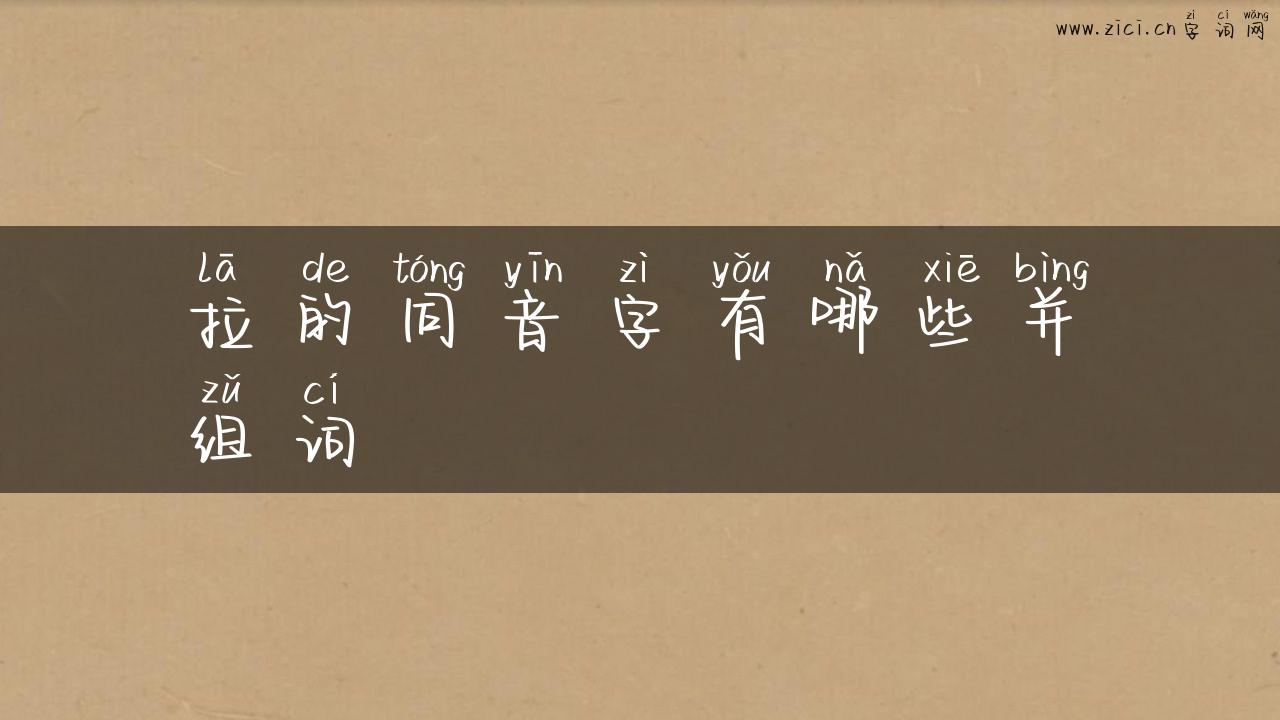 zì cí wǎng
www.zici.cn 字词网
lā de tóng yīn zì yǒu nǎ xiē bìng
拉的同音字有哪些并
zǔ cí
组词